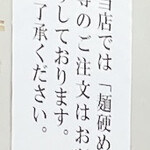 当店では「麺硬め
等のご注文はお
りしております。
了承ください。